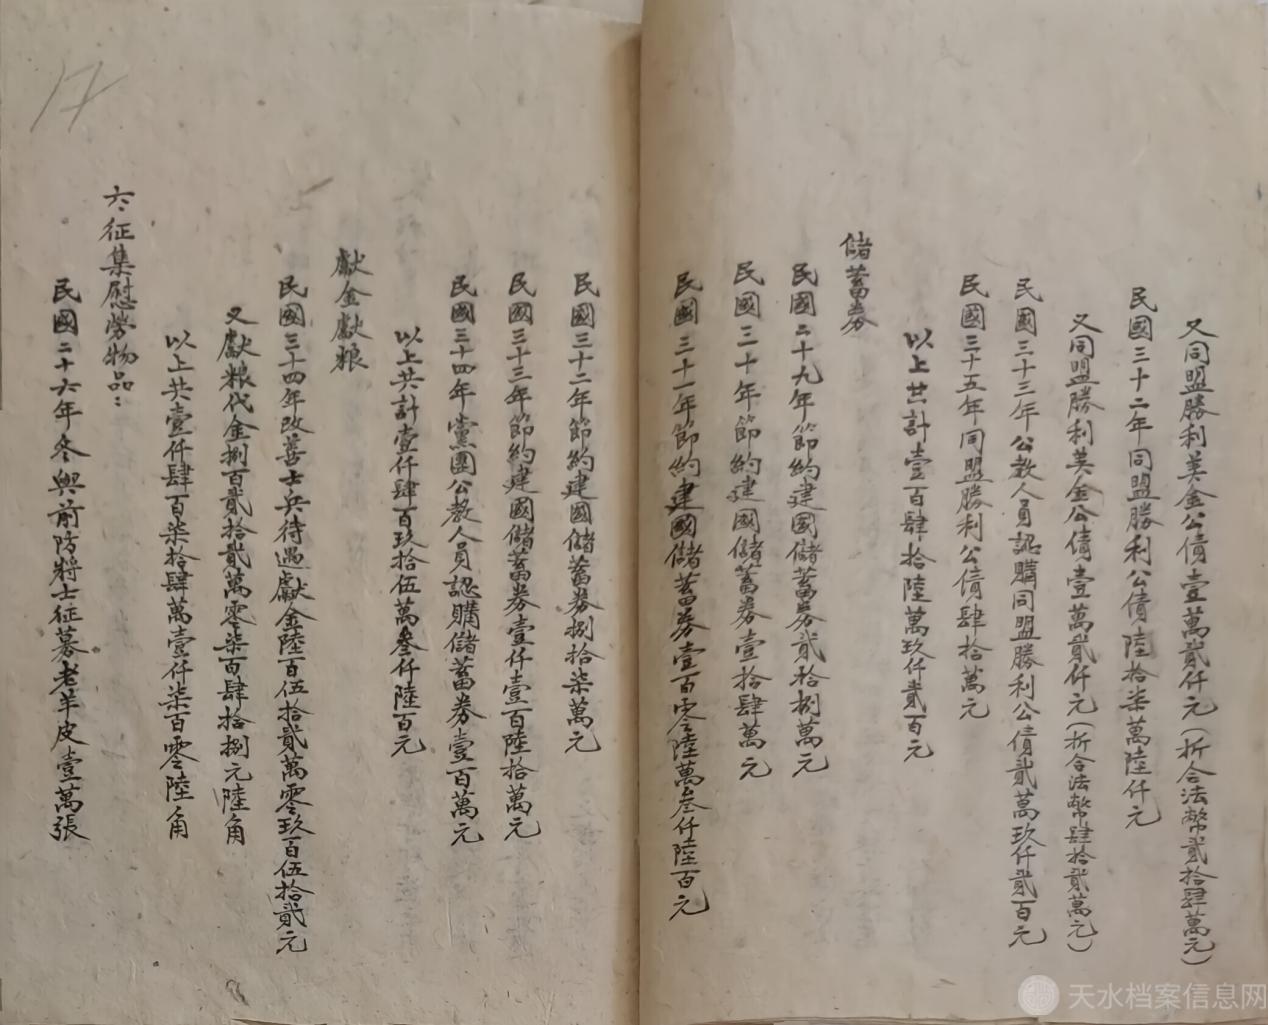 又同盟勝利美金公債壹萬貳仟元(折合法幣貳拾肆萬元)
民國三十二年同盟勝利公債陸拾柒萬陸仟元
又同盟勝利美金公債壹萬貳仟元(折合法幣肆拾貳萬元)
民國三十三年公教人員認購同盟勝利公債貳萬玖仟貳百元
民國三十五年同盟勝利公債肆拾萬元
以上共計壹百肆拾陸萬玖仟貳百元
儲蓄券
民國二十九年節約建國儲蓄券貳拾捌萬元
民國三十年節約建國儲蓄券壹拾肆萬元
民國三十一年節約建國儲蓄券壹百零陸萬叁仟陸百元
民國三十二年節約建國儲蓄券捌拾柒萬元
民國三十三年節約建國儲蓄券壹仟壹百陸拾萬元
民國三十四年黨團公教人員認購儲蓄券壹百萬元
以上共計壹仟肆百玖拾伍萬叁仟陸百元
獻金獻粮
民國三十四年改善士兵待遇獻金陸百伍拾貳萬零玖百伍拾貳元
又獻粮代金捌百貳拾貳萬零柒百肆拾捌元陸角
以上共壹仟肆百柒拾肆萬壹仟柒百零陸角
六、征集慰勞物品：
民國二十六年冬與前防將士征募老羊皮壹萬張
17
天水档案信息网